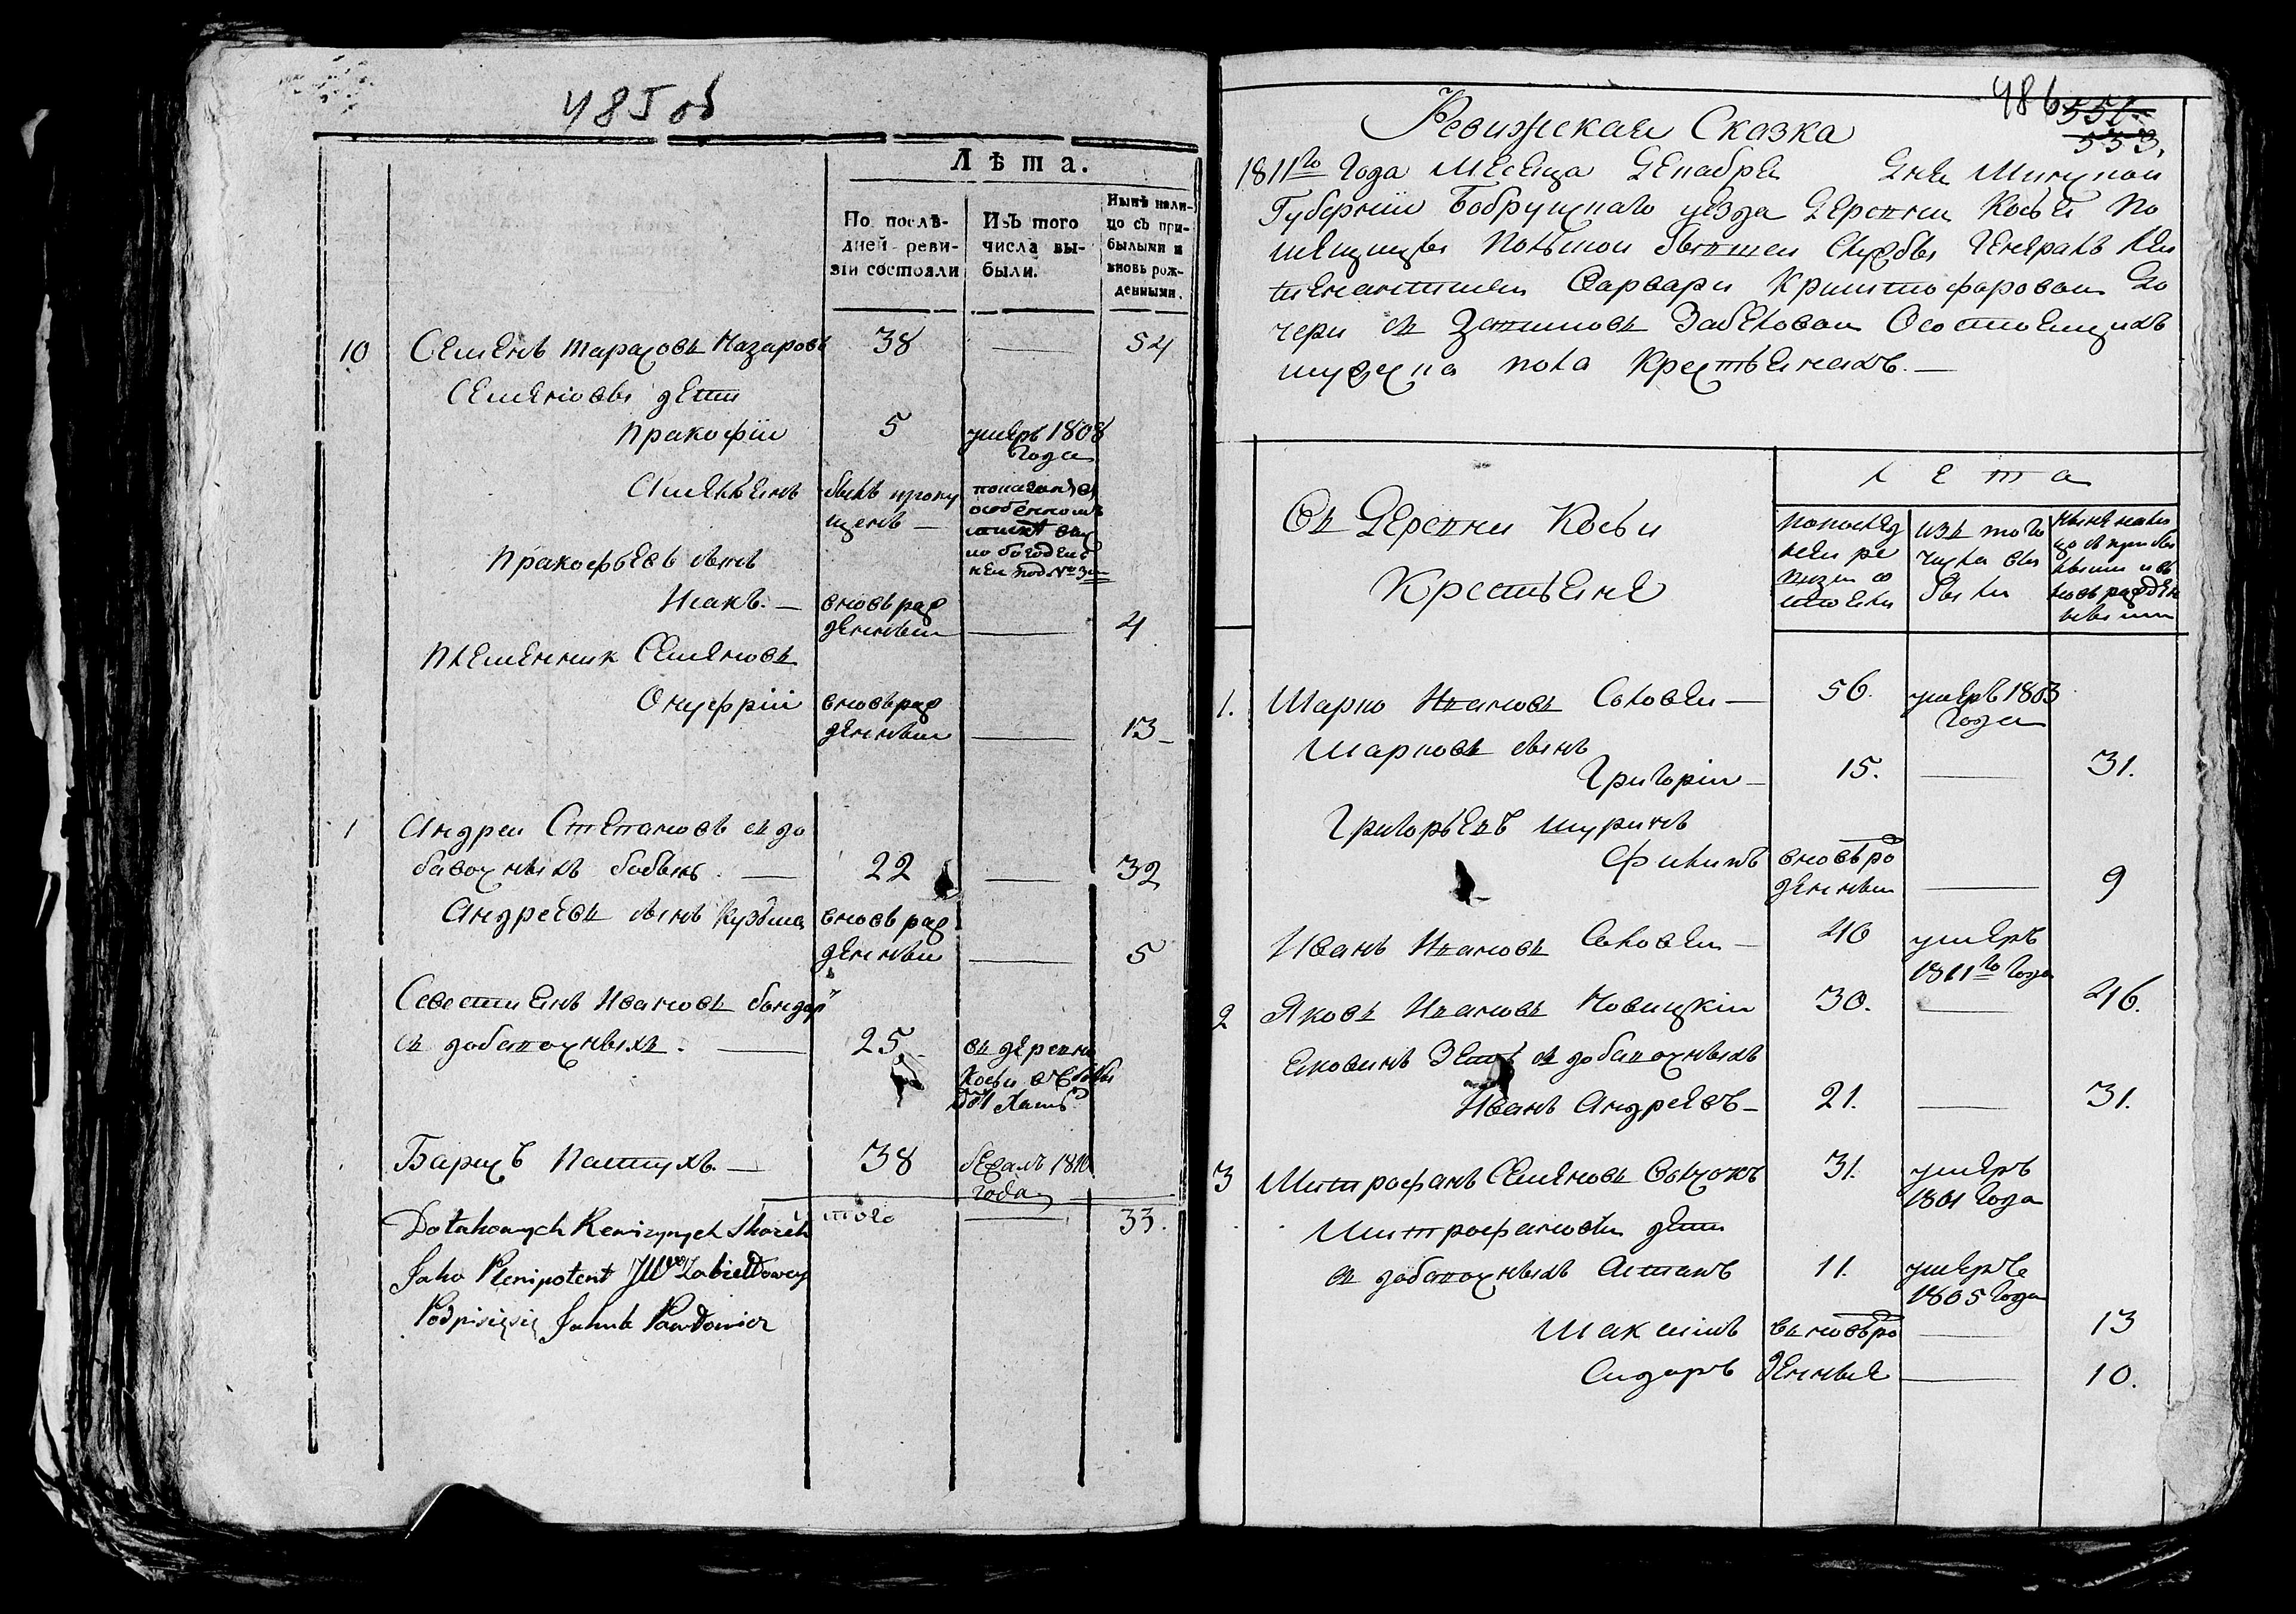 485 об
Лѣта.
По послѣ-
дней реви-
зіи состояли
Изъ того
числа вы-
были.
Нынѣ нали-
цо съ при-
былыми и
вновь рож-
денными.
10 Семенъ тарасовъ Назаровъ 38 — 54
Семеновы дети
Пракофiи 5 умеръ 1808
Года
Емельянъ былъ пропу
щенъ —
под № 3
Пракофьевъ сынъ
Исакъ. — вновь раж
денныи — 4
Племенник Семеновъ
Онуфріи вновь раж
денныи — 13
1 Андреи Степановъ въ до
бавочныхъ бобыль — 22 — 32
Андреевъ сынъ Кузьма вновь раж
денныи — 5
Севестиянъ Ивановъ бондарь
въ добавочныхъ. — 25 въ деревню
Косьи
Барысъ Пастухъ. — 38 бежалъ 1810
года
итого — 33.
Jako Plenipotent JW Zabiełłowey
Podpisuję się Jakub Pawłowicz
486 551
553.
Ревижская Сказка
1811го Года месеца Декабря Дня Минской
Губернiи Бобруйскаго уезда Деревни Косьи По
мещицы Польской бывшей службы Генералъ Леи
тенантшеи Варвары Криштофоровои До
чери въ Забеловои О состоящихъ
мужеска пола Крестьянахъ. —
Въ Деревни Косьи
Крестьяне
лета
попослед
неи ре
визiи со
стояли
изъ того
числа вы
были
ныне нали
цо съ прибы
лыми и в
новь рожден
ными
1. Марко Ивановъ Соловеи — 56. умеръ 1803
Года
Марковъ сынъ
Григорiи — 15. — 31.
Григорьевъ шуринъ
Филипъ вновьро
жденныи — 9
Иванъ Ивановъ Соловеи — 40 умеръ
1811го Года
2 Яковъ Ивановъ Новицкiи 30. — 40.
Яковинъ Зять въ добавочныхъ
Иванъ Андреевъ — 21. — 31.
3 Митрофанъ Семеновъ 31. умеръ
1801 Года
Митрофановы дети
въ добавочныхъ Астапъ 11. умеръ
1805 Года
Максимъ вновьро — 13
Сидаръ жденные — 10.